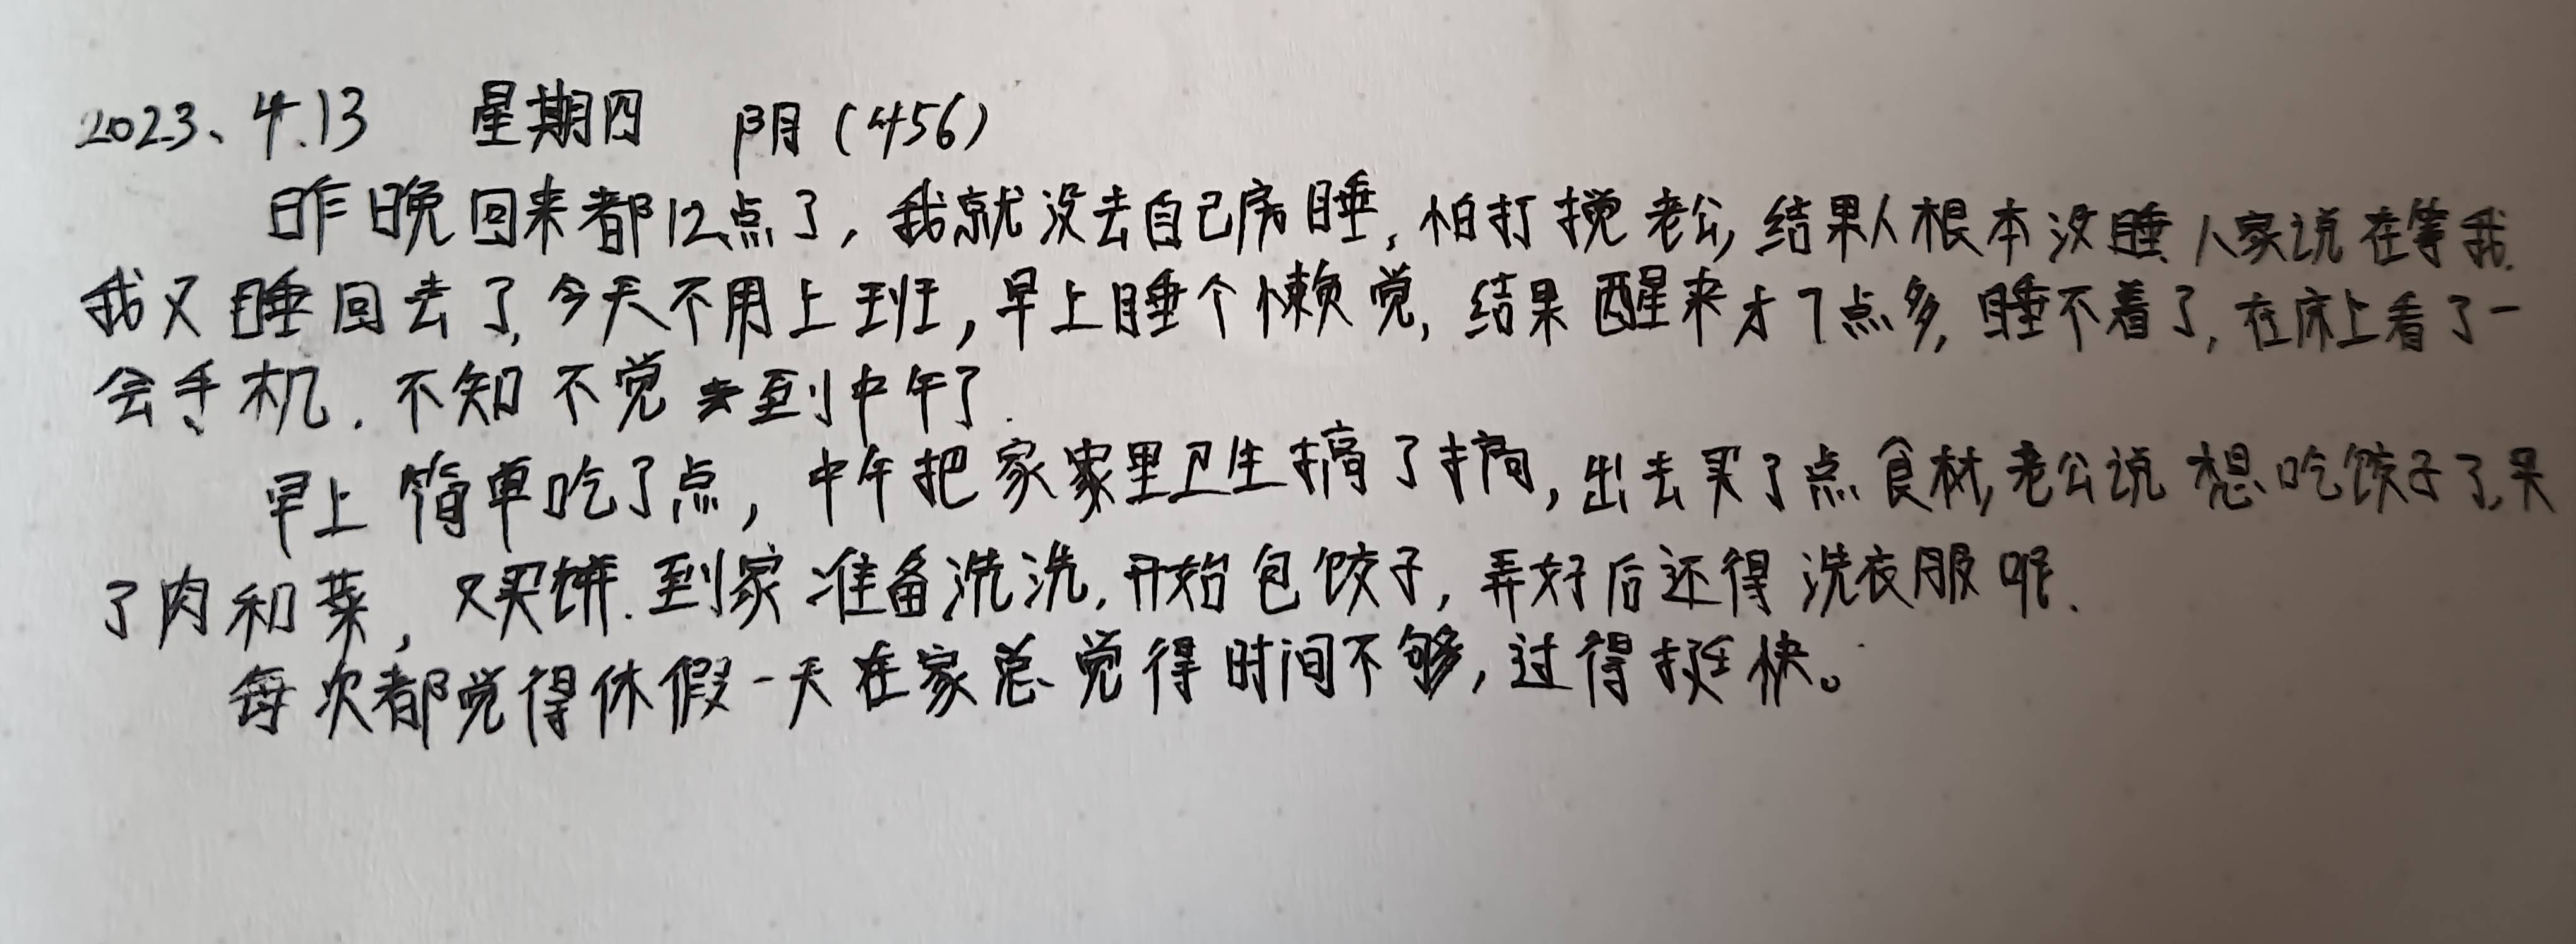 2023、4.13 星期四 阴(456)
昨晚回来都12点了,我就没去自己房睡,怕打搅老公,结果人根本没睡,人家说在等我.
我又睡回去了,今天不用上班,早上睡个懒觉,结果醒来才7点多,睡不着了,在床上看了一
会手机.不知不觉到中午了.
早上简单吃了点,中午把家家里卫生搞了搞,出去买了点食材,老公说想吃饺子了,买
了肉和菜,又买饼.到家准备洗洗,开始包饺子,弄好后还得洗衣服呢.
每次都觉得休假一天在家总觉得时间不够,过得挺快。